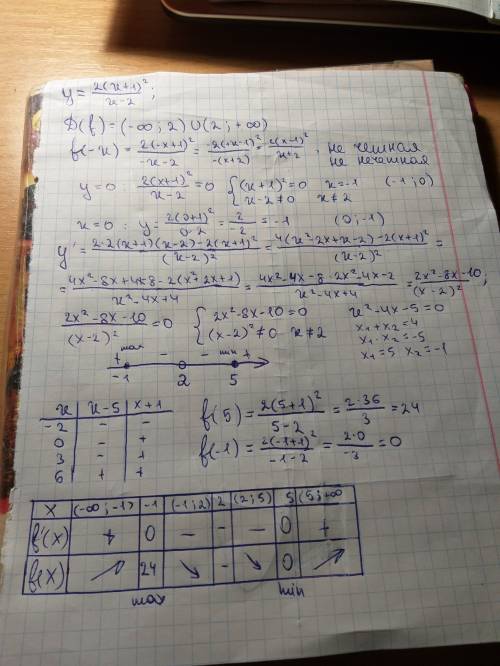 y = 2(x+1)² / x-2 ;
D(f) = (-∞; 2) ∪ (2; +∞)
f(-x) = 2(-x+1)² / -x-2 = / -(x+2) = / x+2 , не чётная
не нечётная
y=0 2(x+1)² / x-2 = 0 { (x+1)²=0 x=-1 (-1; 0)
x-2≠0 x≠2
x=0 : y = 2(0+1)² / 0-2 = 2 / -2 = -1 (0; -1)
y' = 2·2(x+1)(x-2)-2(x+1)² / (x-2)² = 4(x²-2x+x-2)-2(x+1)² / (x-2)² =
= 4x²-8x+4x-8-2(x²+2x+1) / x²-4x+4 = 4x²-4x-8-2x²-4x-2 / x²-4x+4 = 2x²-8x-10 / (x-2)² ;
2x²-8x-10 / (x-2)² = 0 { 2x²-8x-10=0 x²-4x-5=0
(x-2)²≠0 x≠2 x₁+x₂=4
x₁·x₂=-5
x₁=5 x₂=-1
+ max - - min +
-1 2 5
x x-5 x+1
-2 - -
0 - +
3 - +
6 + +
f(5) = 2(5+1)² / 5-2 = 2·36 / 3 = 24
f(-1) = 2(-1+1)² / -1-2 = 2·0 / -3 = 0
x (-∞; -1) -1 (-1; 2) 2 (2; 5) 5 (5; +∞
f'(x) + 0 - - - 0 +
f(x) ↗ 24 ↘ - ↘ 0 ↗
max min